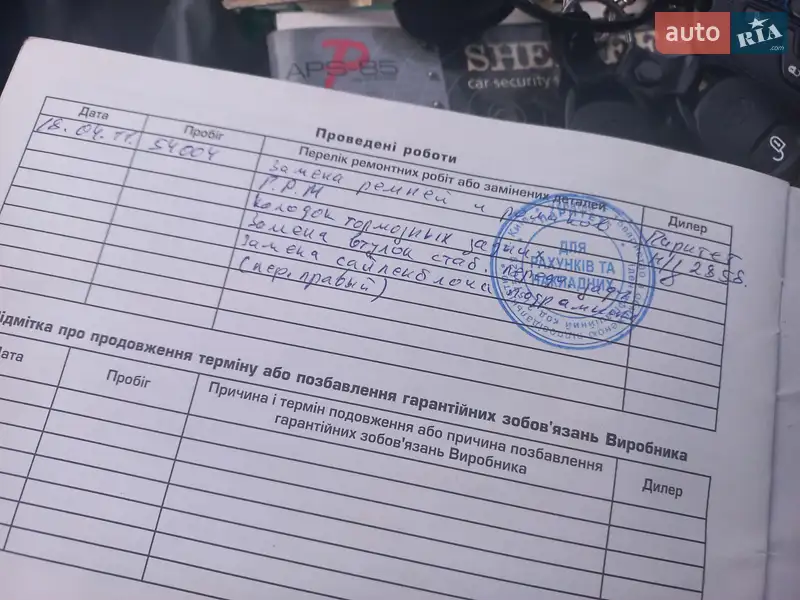 auto RIA .com
APS-85
SHERIFF
car security s
Проведені роботи
Дата
Пробіг
Перелік ремонтних робіт або замінених деталей
Дилер
18.04.11. 54004 Замена ремней и роликов Паритет
Г.Р.М
колодок тормозных задних
Замена втулок стаб. передн.
Замена сайлентблока подрамника
(пер. правый)
ДЛЯ
РАХУНКІВ ТА
НАКЛАДНИХ
ідмітка про продовження терміну або позбавлення гарантійних зобов'язань Виробника
Дата
Пробіг
Причина і термін подовження або причина позбавлення
гарантійних зобов'язань Виробника
Дилер